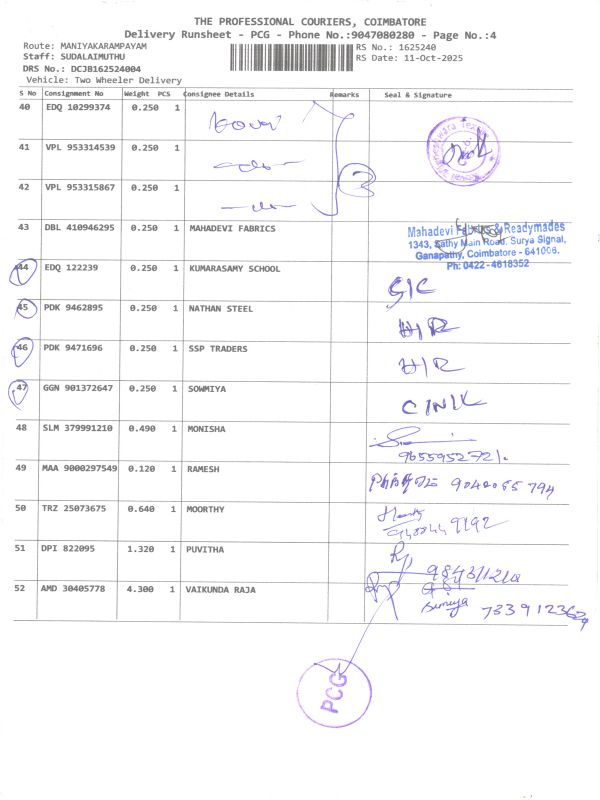 THE PROFESSIONAL COURIERS, COIMBATORE
Delivery Runsheet - PCG - Phone No.:9047080280 - Page No.:4
Route: MANIYAKARAMPAYAM RS No.: 1625240
Staff: SUDALAIMUTHU RS Date: 11-Oct-2025
DRS No.: DCJB162524004
Vehicle: Two Wheeler Delivery
S No Consignment No Weight PCS Consignee Details Remarks Seal & Signature
40 EDQ 10299374 0.250 1
41 VPL 953314539 0.250 1
42 VPL 953315867 0.250 1
43 DBL 410946295 0.250 1 MAHADEVI FABRICS
Mahadevi Fabrics & Readymades
1343, Sathy Main Road, Surya Signal,
Ganapathy, Coimbatore - 641006.
Ph: 0422-4618352
44 EDQ 122239 0.250 1 KUMARASAMY SCHOOL
45 PDK 9462895 0.250 1 NATHAN STEEL H/R
46 PDK 9471696 0.250 1 SSP TRADERS H/R
47 GGN 901372647 0.250 1 SOWMIYA
48 SLM 379991210 0.490 1 MONISHA
9655952721.
49 MAA 9000297549 0.120 1 RAMESH
50 TRZ 25073675 0.640 1 MOORTHY
51 DPI 822095 1.320 1 PUVITHA
52 AMD 30405778 4.300 1 VAIKUNDA RAJA
PCG